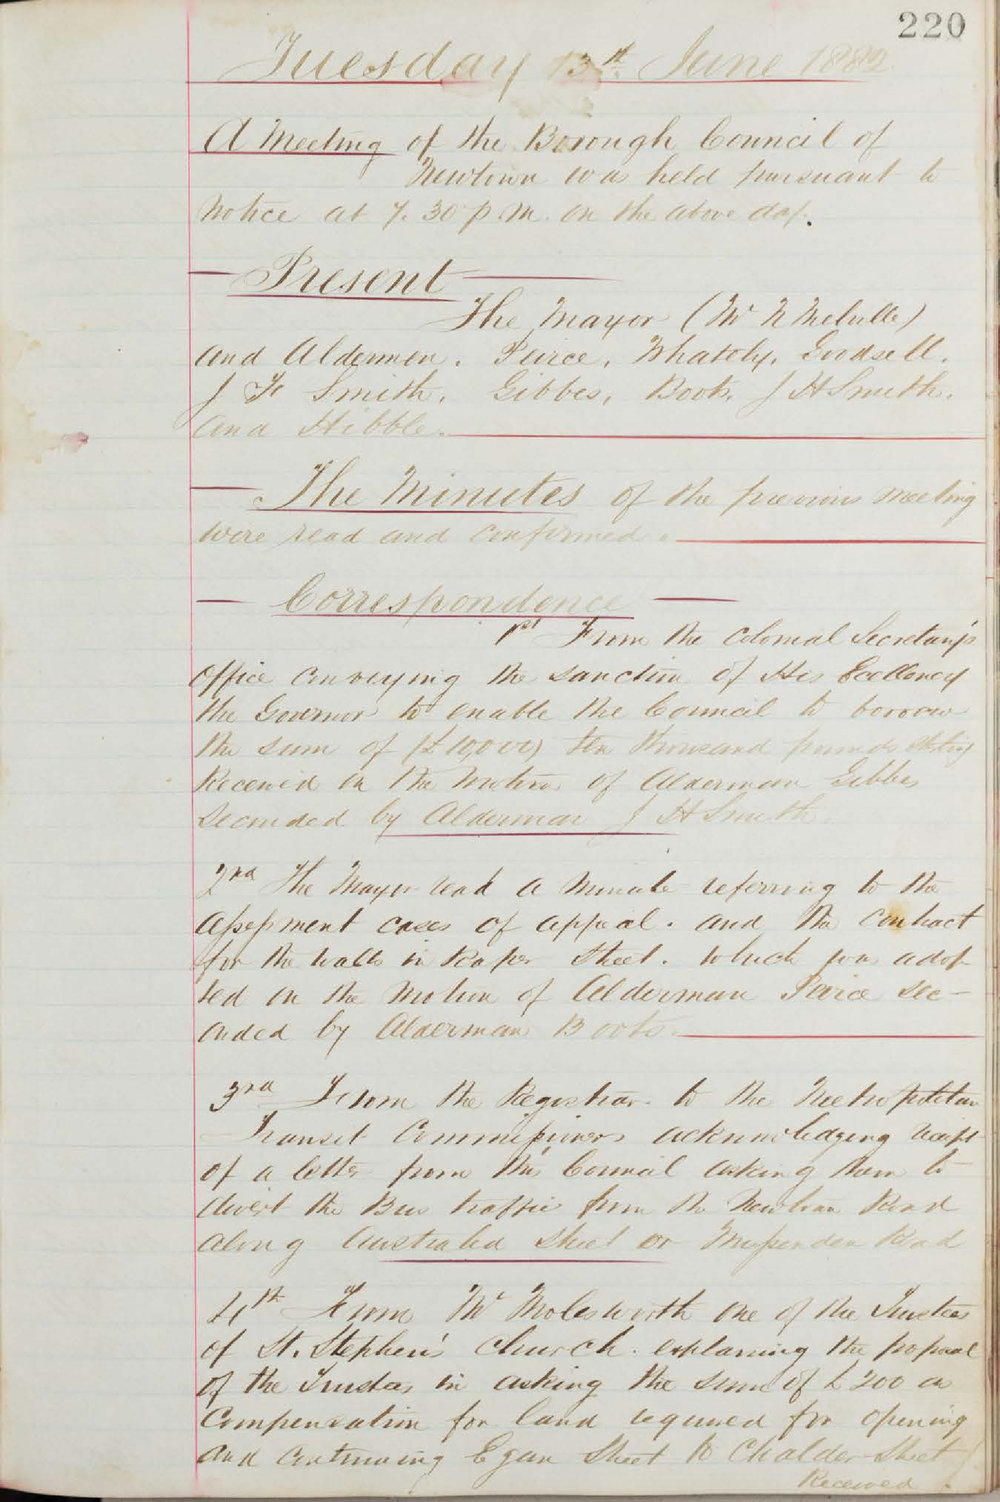 220
Tuesday 13th June 1882
A Meeting of the Borough Council of
Newtown was held pursuant to
Notice at 7.30 p.m. on the above day.
Present
The Mayor (Mr N Melville)
and Aldermen. Peirce, Whately, Goodsell.
J F Smith, Gibbes, Boots, J H Smith.
and Hibble.
The Minutes of the previous meeting
were read and confirmed.
Correspondence
1st From the Colonial Secretary's
Office conveying the sanction of His Excellency
the Governor to enable the Council to borrow
the sum of (£10,000) ten thousand pounds sterling
Received on the Motion of Alderman Gibbes
seconded by Alderman J H Smith.
2nd The Mayor read a Minute referring to the
assessment cases of appeal. and the contract
for the walls in Raper Street. which was adop
ted on the Motion of Alderman Peirce sec-
onded by Alderman Boots.
3rd From the Registrar to the Metropolitan
Transit Commissioners acknowledging receipt
of a letter from this Council asking them to
divert the Bus traffic from the Newtown Road
along Australia Street or Missenden Road
4th From Mr Molesworth one of the Trustees
of St. Stephen's Church. explaining the proposal
of the Trustees in asking the sum of £200 as
Compensation for land required for opening
and continuing Egan Street to Chalder Street
Received.